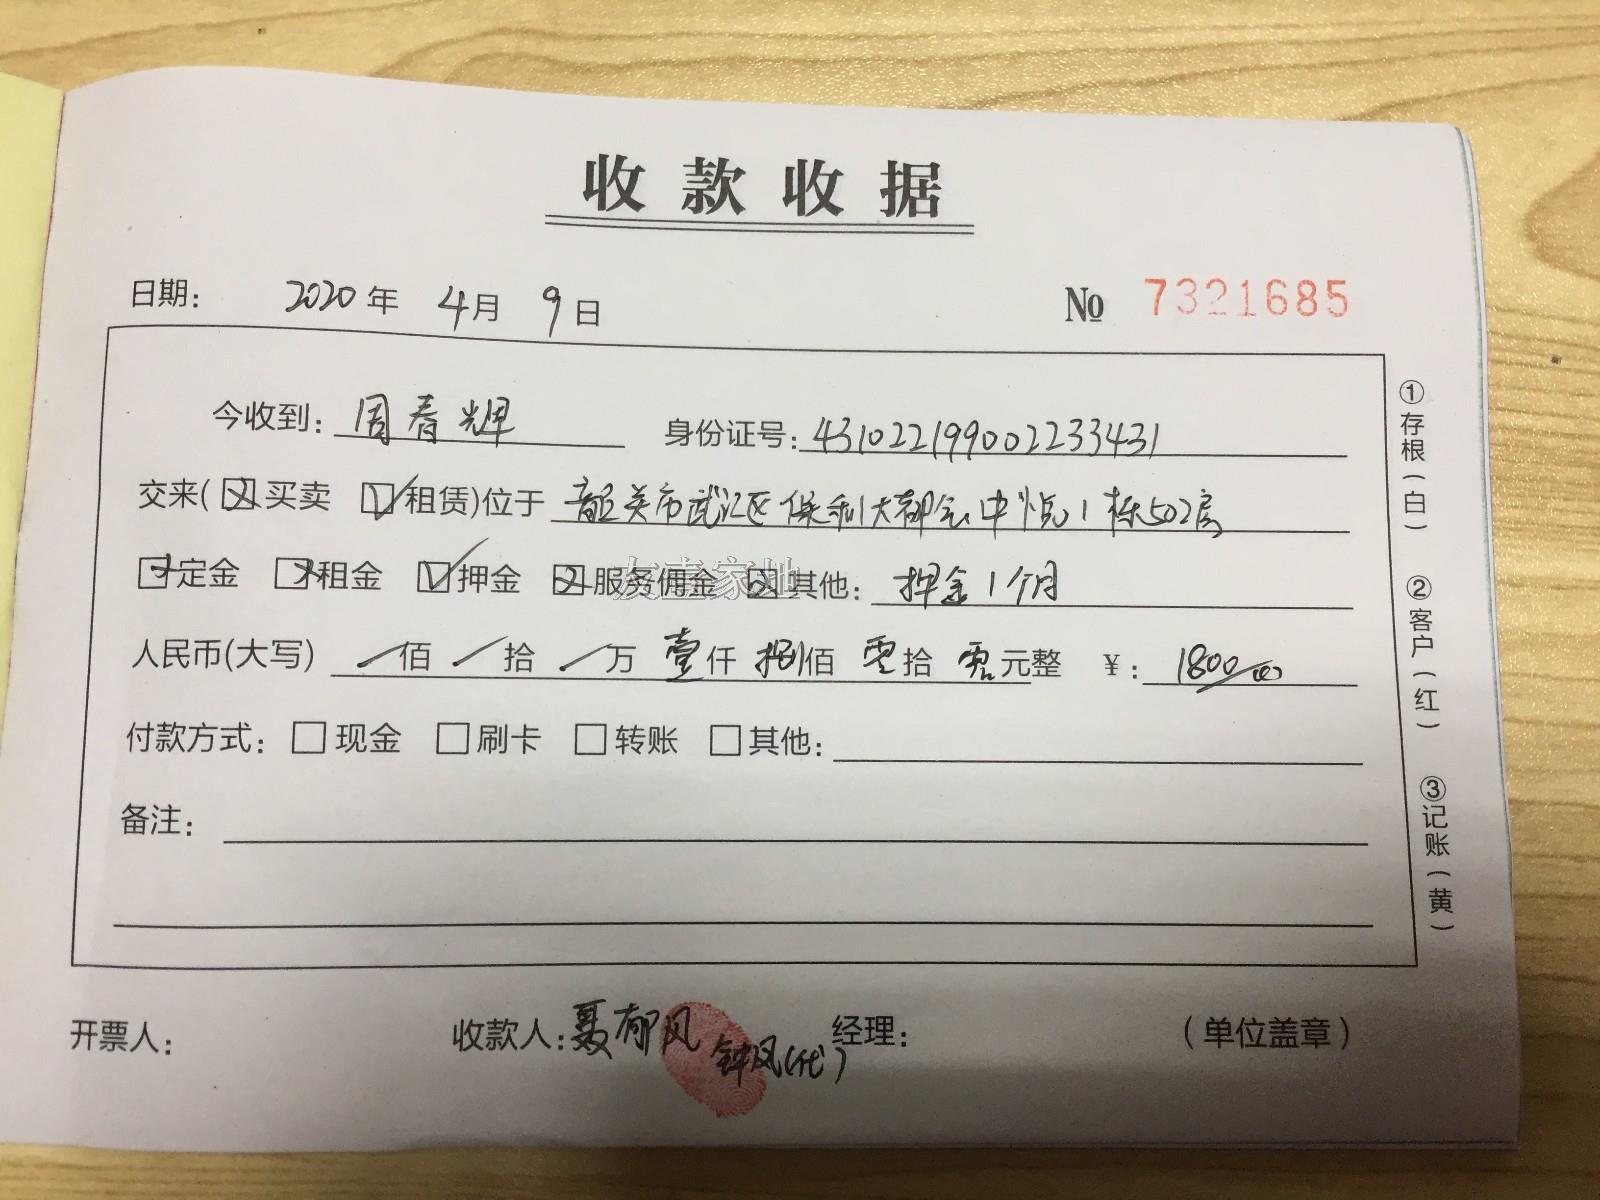 收款收据
日期： 2020年 4月 9日 № 7321685
今收到：周春辉 身份证号：431022199002233431
交来(☒买卖 ☑租赁)位于 韶关市武江区保利大都会中悦1栋502房
☒定金 ☒租金 ☑押金 ☒服务佣金 ☒其他：押金1个月
人民币(大写) /佰/拾/万壹仟捌佰零拾零元整 ￥：1800
付款方式：□现金 □刷卡 □转账 □其他：
备注：
开票人： 收款人：聂郁风 钟风(代) 经理： （单位盖章）
①存根(白) ②客户(红) ③记账(黄)
友壹家地